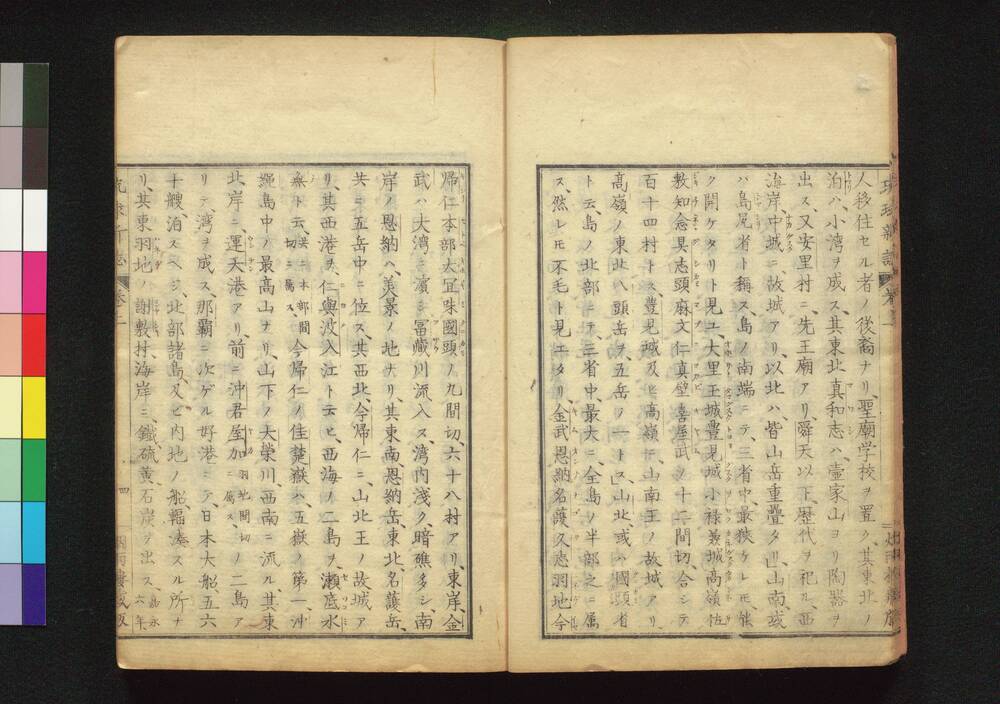 人移住セル者ノ後裔ナリ、聖廟学校ヲ置ク、其東北ノ
泊ハ小湾ヲ成ス、其東北真和志ハ壷家山ヨリ陶器ヲ
出ス、又安里村ニ、先王廟アリ、舜天以下歴代ヲ祀ル、西
海岸中城ニ、故城アリ、以北ハ、皆山岳重疊タリ、山南或
ハ島尻省ト稱ス、島ノ南端ニテ、三省中最狭ケレモ、能
ク開ケタリト見ユ、大里玉城豊見城小禄兼城高嶺佐
敷知念具志頭麻文仁真壁喜屋武ノ十二間切、合シテ
百十四村トス、豊見城及ヒ高嶺ニ、山南王ノ故城アリ、
高嶺ノ東北八頭岳ヲ五岳ノ一トス、山北、或ハ國頭省
ト云、島ノ北部ニテ、三省中最大ニ、全島ノ半部之ニ属
ス、然レモ不毛ト見エタリ、金武恩納名護久志羽地今
帰仁本部大宜味國頭ノ九間切、六十八村アリ、東岸、金
武ハ大湾ニ濱シ、冨藏川流入ス、湾内淺ク、暗礁多シ、南
岸ノ恩納ハ、美景ノ地ナリ、其東南恩納岳東北、名護岳、
共ニ五岳中ニ位ス、其西北、今帰仁ニ、山北王ノ故城ア
リ、其西港ヲ、仁與波入江ト云ヒ、西海ノ二島ヲ、瀬底水
無ト云、共ニ本部間切ニ属ス、今帰仁ノ佳楚嶽ハ、五嶽ノ第一、沖
縄島中ノ最高山ナリ、山下ノ大榮川西南ニ流ル、其東
北岸ニ、運天港アリ、前ニ沖君屋加羽地間切ニ属ス、ノ二島ア
リテ、湾ヲ成ス、那覇ニ次ゲル好港ニテ、日本大船、五六
十艘、泊スベシ、北部諸島、又ビ内地ノ船、輻湊スル所ナ
リ、其東羽地ノ謝敷村海岸ニ、鐵硫黄、石炭ヲ出ス、嘉永六年